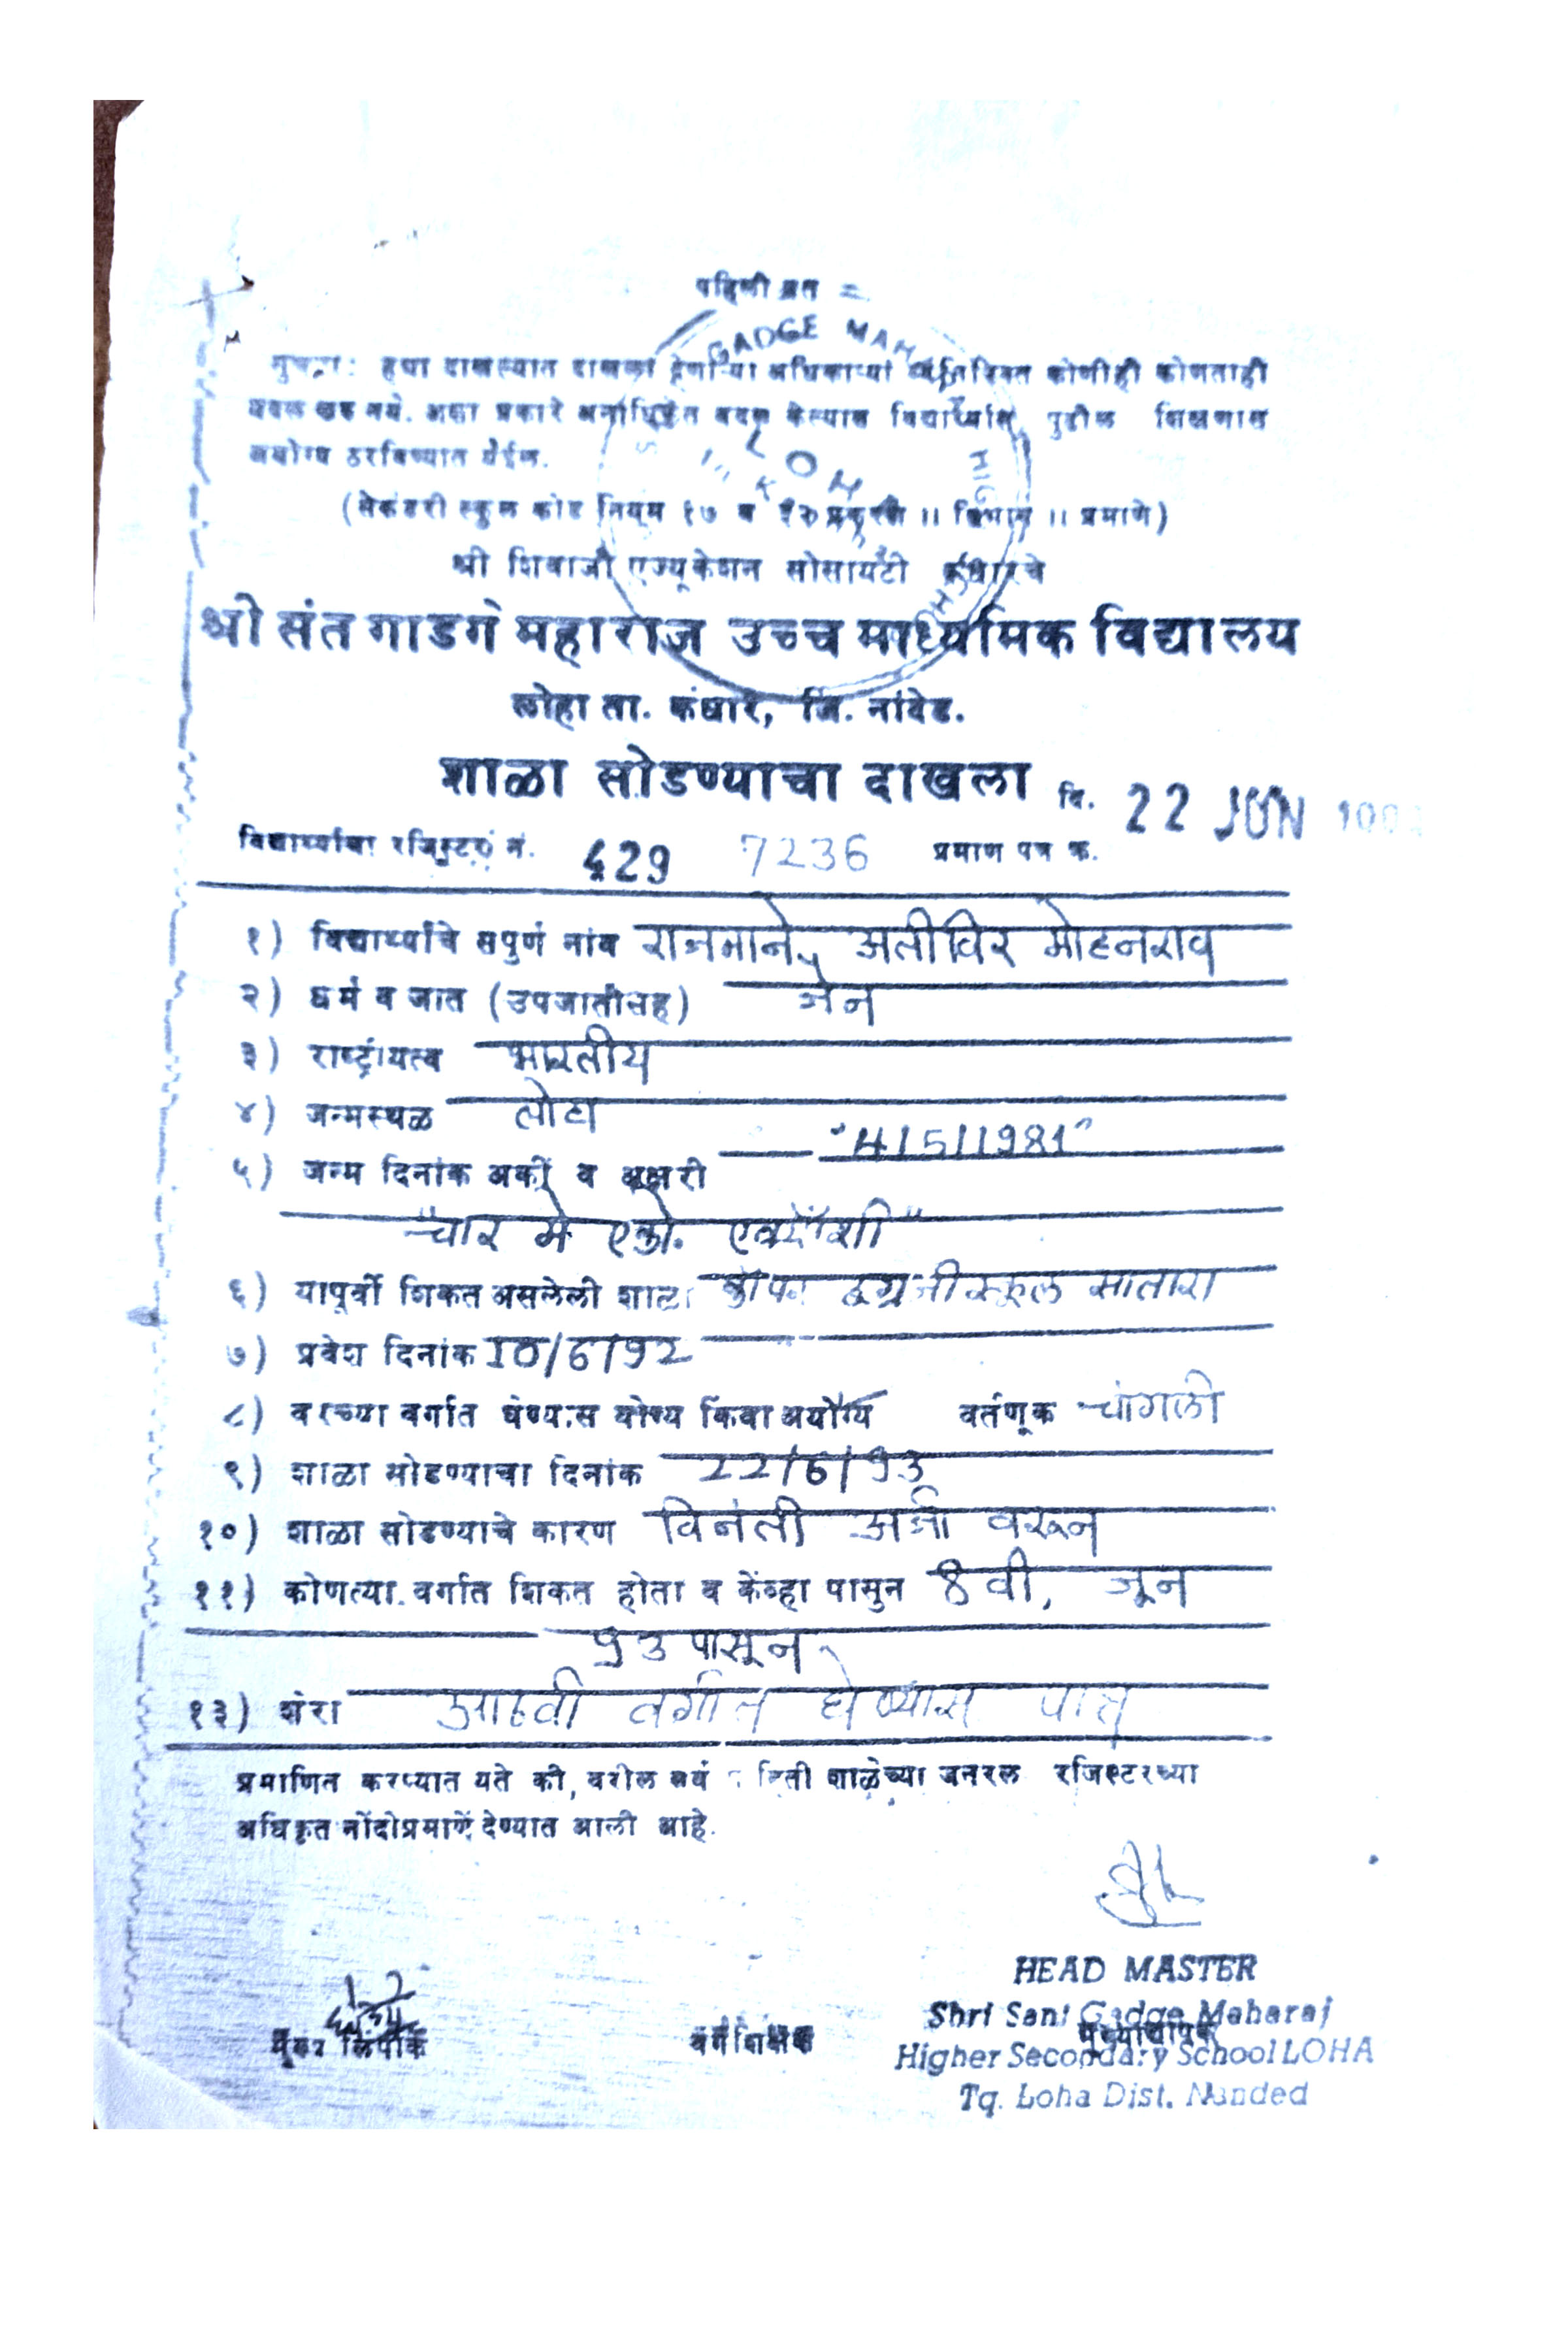 पहिली प्रत =
GADGE MAH
सुचना: ह्या दाखल्यात दाखला देणाऱ्या अधिकाऱ्या व्यतिरिक्त कोणीही कोणताही
बदल करू नये. अशा प्रकारे अनधिकृत बदल केल्यास विद्यार्थ्यास पुढील शिक्षणास
अयोग्य ठरविण्यात येईल.
(सेकंडरी स्कुल कोड नियम १७ व प्रमाणे)
श्री शिवाजी एज्यूकेशन सोसायटी कंधारचे
श्री संत गाडगे महाराज उच्च माध्यमिक विद्यालय
लोहा ता. कंधार, जि. नांदेड.
शाळा सोडण्याचा दाखला दि. 22 JUN
विद्यार्थ्याचा रजिस्टर नं. 429 7236 प्रमाण पत्र क्र.
१) विद्यार्थ्याचे सपुर्ण नांव राजमाने, अतीविर मोहनराव
२) धर्म व जात (उपजातीसह) जैन
३) राष्ट्रीयत्व भारतीय
४) जन्मस्थळ लोहा
५) जन्म दिनांक अकीं व अक्षरी "4/5/1981"
"चार मे एको. "
६) यापूर्वी शिकत असलेली शाळा स्कूल सातारा
७) प्रवेश दिनांक 10/6/92
८) वरच्या वर्गात घेण्यास योग्य किंवा अयोग्य वर्तणूक चांगली
९) शाळा सोडण्याचा दिनांक 22/6/93
१०) शाळा सोडण्याचे कारण विनंती अर्जा वरून
११) कोणत्या वर्गात शिकत होता व केंव्हा पासुन 8 वी, जून
93 पासून
१३) शेरा आठवी वर्गात घेण्यास पात्र
प्रमाणित करण्यात येते की, वरील सर्व शाळेच्या जनरल रजिस्टरच्या
अधिकृत नोंदीप्रमाणें देण्यात आली आहे.
HEAD MASTER
Shri Sant Gadge Maharaj
मुख्य लिपीक वर्ग शिक्षक मुख्याध्यापक
Higher Secondary School LOHA
Tq. Loha Dist. Nanded